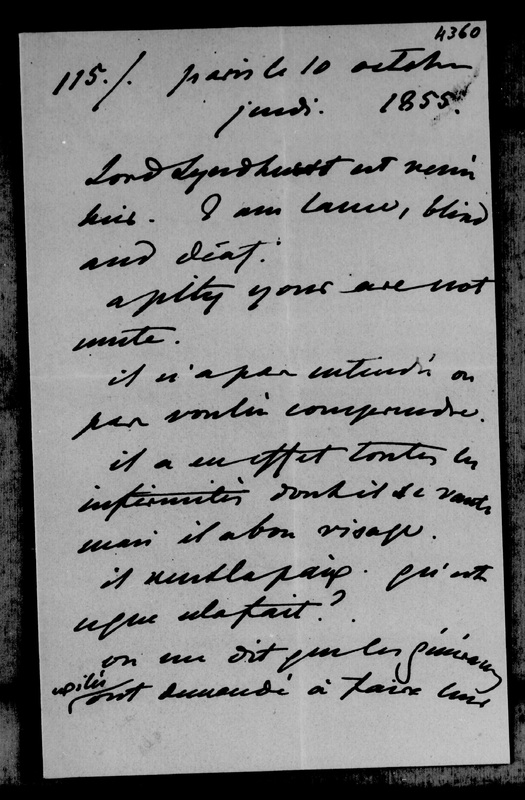 4360
115./. paris le 10 octobre
jeudi. 1855.
Lord Lyndhurst est venu
hier. I am lame, blind
and déaf.
a pity yours are not
mute.
il n'a pas entendu ou
pas voulu comprendre.
il a en effet toutes les
infirmités dont il se vante
mais il a bon visage.
il veut la paix. qu'est
ce que cela fait?
on me dit que les généraux
ont demandé à faire une